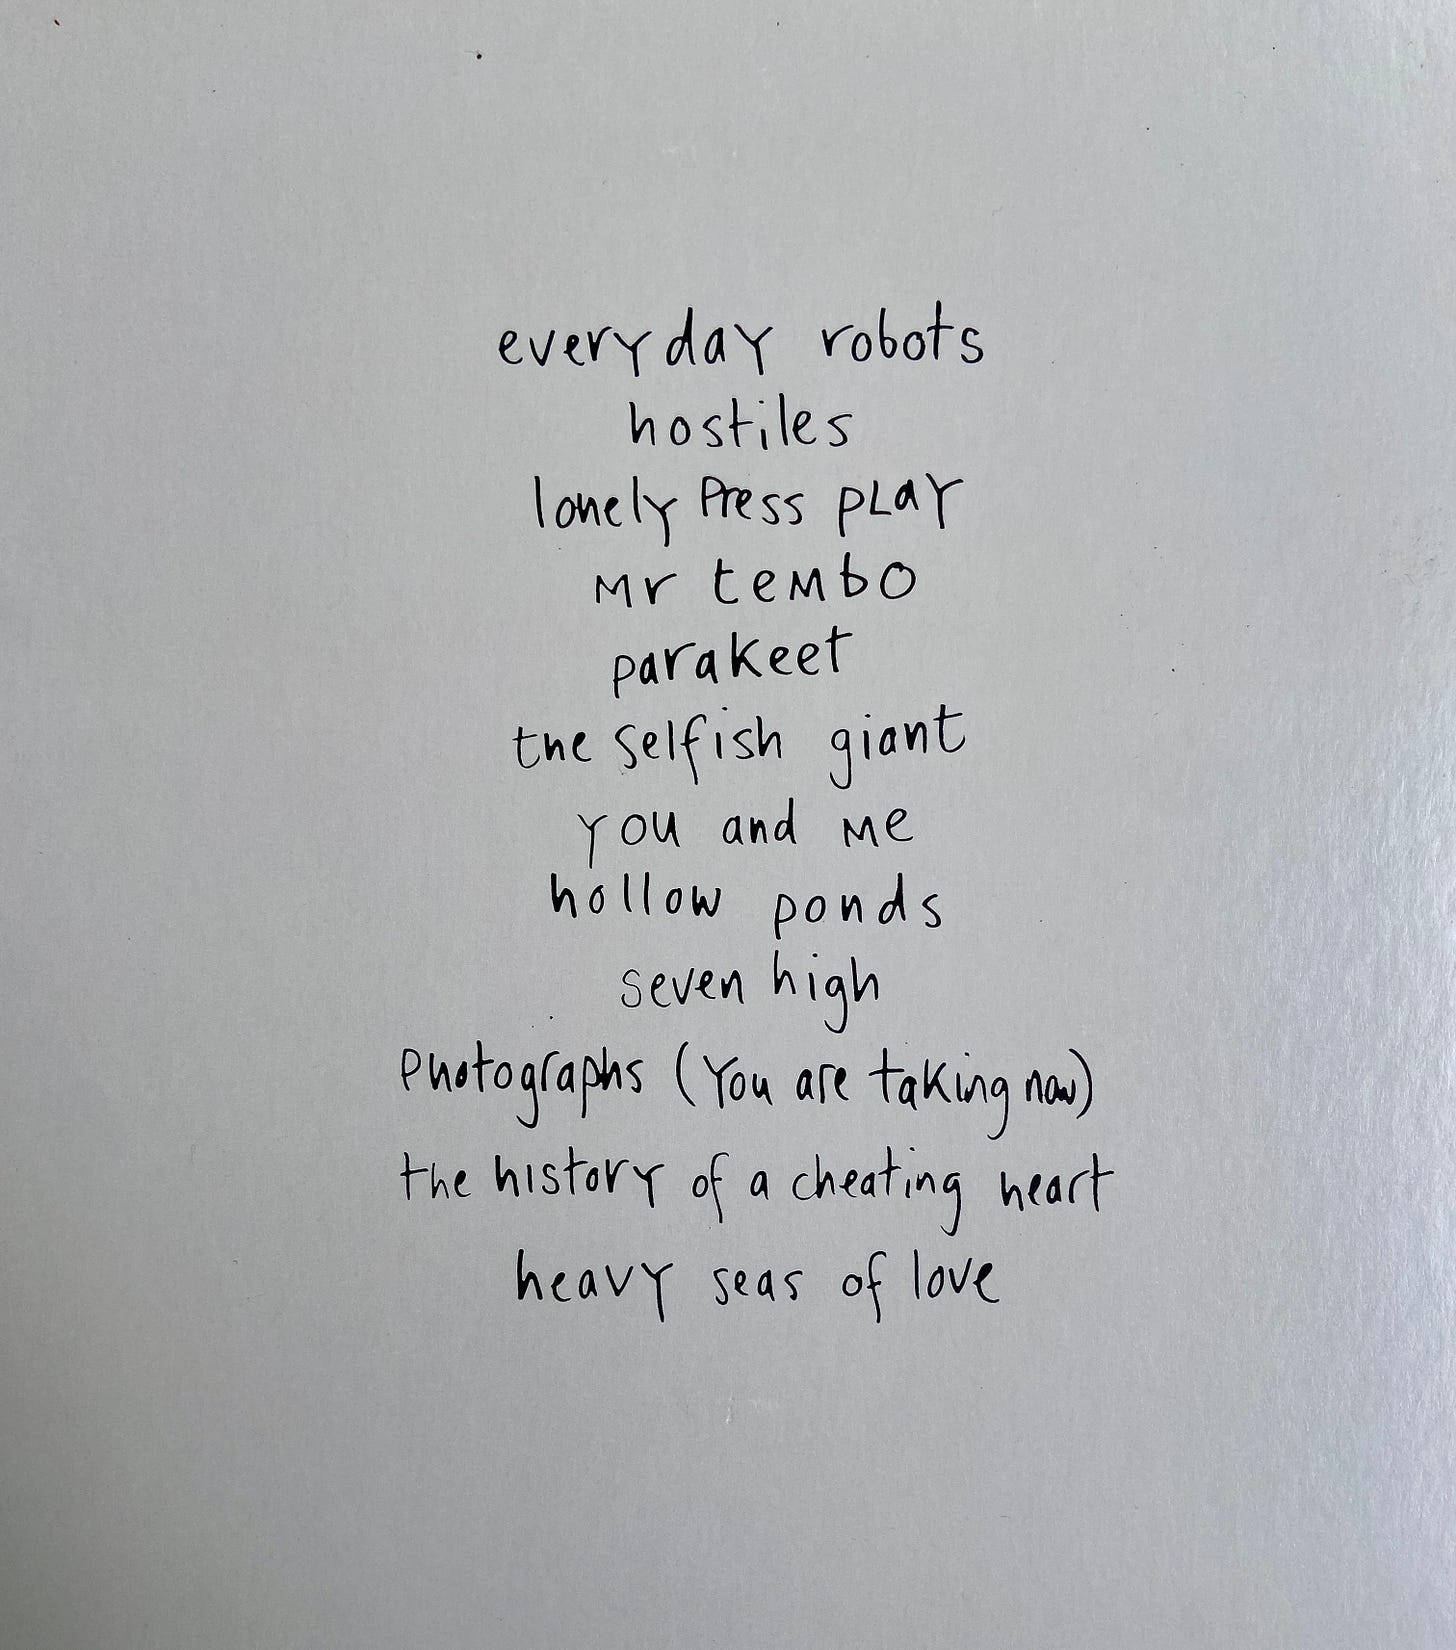 everyday robots
hostiles
lonely Press pLay
Mr teMbo
parakeet
the selfish giant
you and Me
hollow ponds
seven high
Photographs (You are taking now)
the history of a cheating heart
heavy seas of love